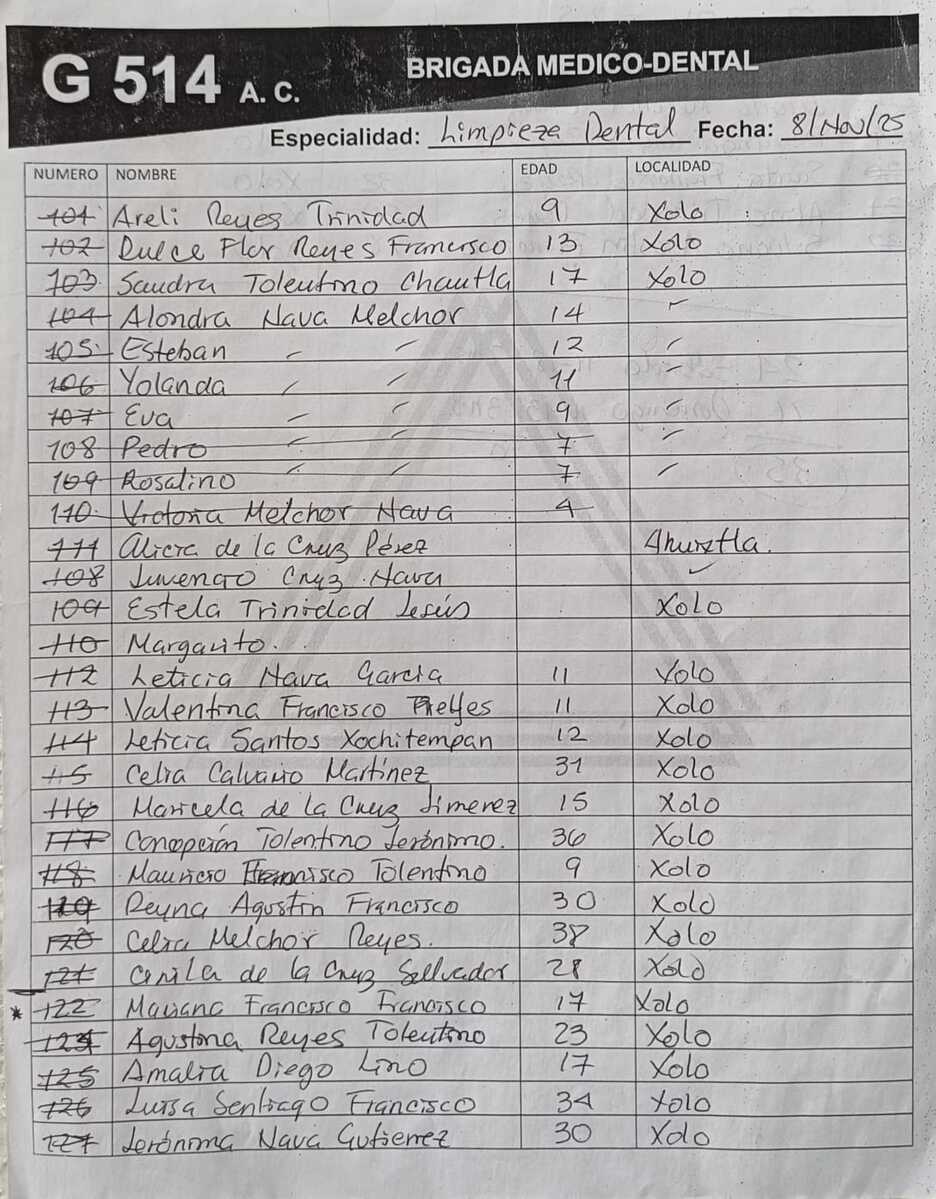 G 514 A. C.
BRIGADA MEDICO-DENTAL
Especialidad: Limpieza Dental Fecha: 8/Nov/25
NUMERO NOMBRE EDAD LOCALIDAD
101 Areli Reyes Trinidad 9 Xolo
102 Dulce Flor Reyes Francisco 13 Xolo
103 Sandra Tolentino Chautla 17 Xolo
104 Alondra Nava Melchor 14 "
105 Esteban " " 12 "
106 Yolanda " " 11 "
107 Eva " " 9 "
108 Pedro " " 7 "
109 Rosalino " " 7 "
110 Victoria Melchor Nava 4
111 Alicia de la Cruz Pérez Ahuixtla.
108 Juvencio Cruz Nava "
109 Estela Trinidad Jesús Xolo
110 Margarito.
112 Leticia Nava Garcia 11 Xolo
113 Valentina Francisco Reyes 11 Xolo
114 Leticia Santos Xochitempan 12 Xolo
115 Celia Calvario Martínez 31 Xolo
116 Maricela de la Cruz Jimenez 15 Xolo
117 Concepción Tolentino Jerónimo. 36 Xolo
118 Mauricio Francisco Tolentino 9 Xolo
Reyna Agustin Francisco 30 Xolo
120 Celia Melchor Reyes. 38 Xolo
121 de la Cruz Sallvador 28 Xolo
* 122 Mayana Francisco Francisco 17 Xolo
Agustina Reyes Tolentino 23 Xolo
125 Amalia Diego Lino 17 Xolo
126 Luisa Sentiago Francisco 34 Xolo
127 Jerónima Nava Gutierrez 30 Xolo